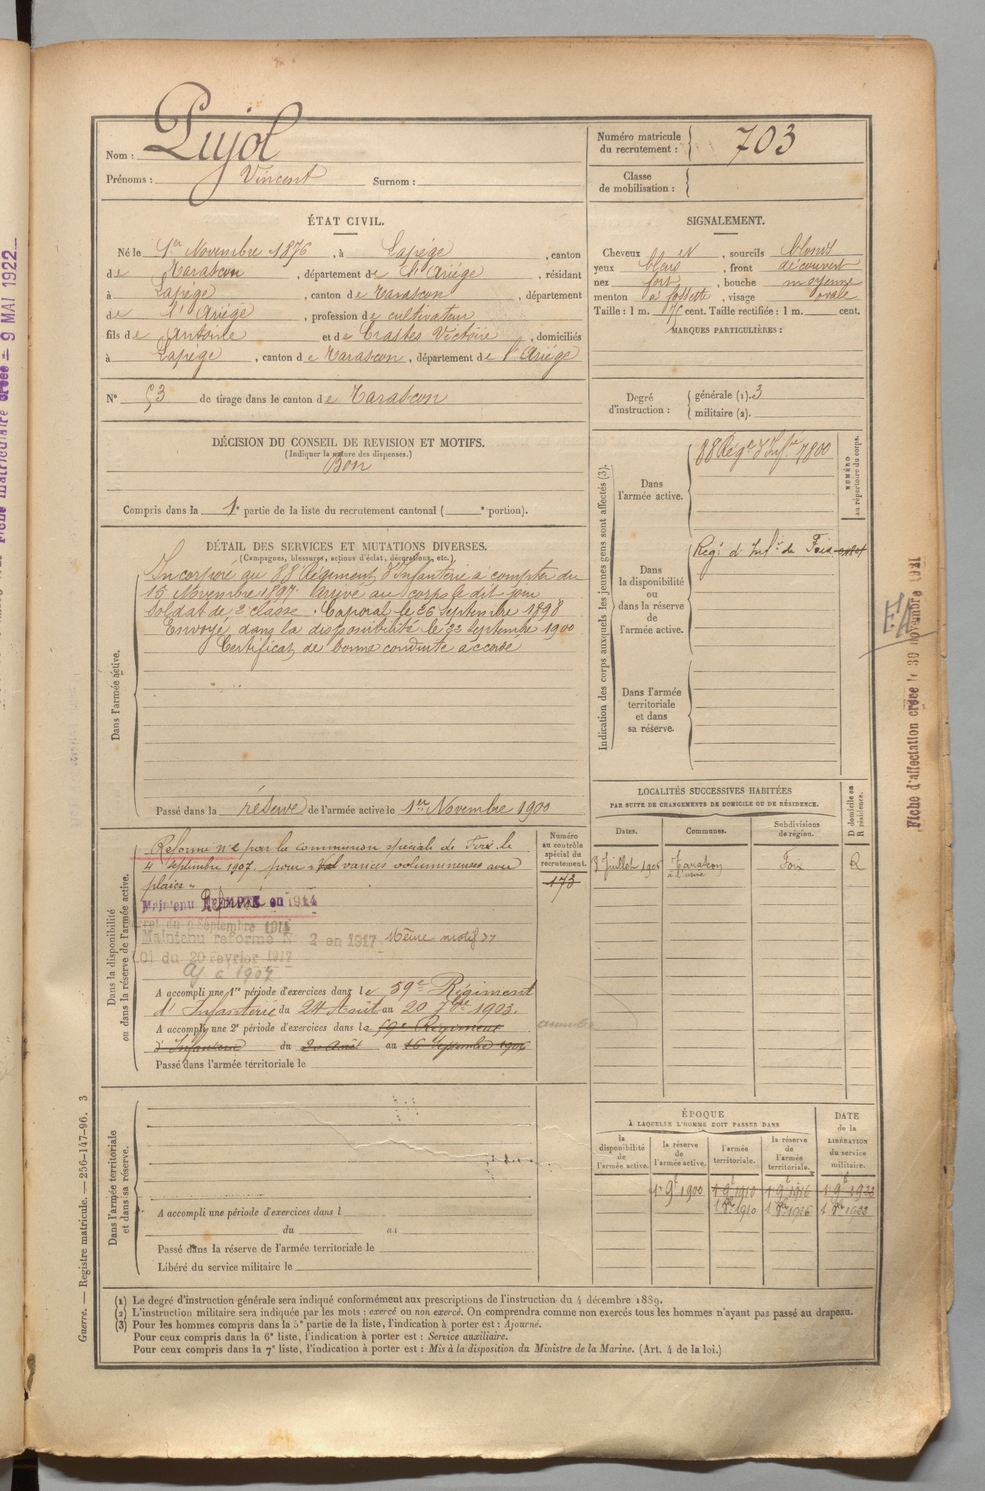 Nom : Pujol
Prénoms : Vincent Surnom :
Numéro matricule
du recrutement : 703
Classe
de mobilisation :
ÉTAT CIVIL.
Né le 1er Novembre 1876, à Lapège, canton
de Tarascon, département de l'Ariège, résidant
à Lapège, canton de Tarascon, département
de l'Ariège, profession de cultivateur
fils de Antoine et de Trastes Victoire, domiciliés
à Lapège, canton de Tarascon, département de l'Ariège
N° 53 de tirage dans le canton de Tarascon
SIGNALEMENT.
Cheveux et, sourcils blonds
yeux bleus, front découvert
nez fort, bouche moyenne
menton à fossette, visage ovale
Taille : 1 m. cent. Taille rectifiée : 1 m. cent.
MARQUES PARTICULIÈRES :
Degré
d'instruction :
générale (1). 3
militaire (2).
DÉCISION DU CONSEIL DE REVISION ET MOTIFS.
(Indiquer la nature des dispenses.)
Bon
Compris dans la 1e partie de la liste du recrutement cantonal ( e portion).
DÉTAIL DES SERVICES ET MUTATIONS DIVERSES.
(Campagnes, blessures, actions d'éclat, décorations, etc.)
Dans l'armée active.
Incorporé au 88 Régiment d'Infanterie à compter du
15 Novembre 1897. Arrivé au corps le dit jour
Soldat de 2e classe. Caporal le 26 Septembre 1898
Envoyé dans la disponibilité le 22 Septembre 1900
Certificat de bonne conduite accordé
Passé dans la réserve de l'armée active le 1er Novembre 1900
Indication des corps auxquels les jeunes gens sont affectés (3).
NUMÉRO
au répertoire du corps.
Dans
l'armée active.
88 Régt d'Infrie 7800
Dans
la disponibilité
ou
dans la réserve
de
l'armée active.
Regt d'Infie de Foix
Dans l'armée
territoriale
et dans
sa réserve.
Dans la disponibilité
ou dans la réserve de l'armée active.
Numéro
au contrôle
spécial du
recrutement.
173
Réformé n°2 par la commission spéciale de Foix le
4 Septembre 1907 pour varices volumineuses avec
plaies
Maintenu en 1914
Maintenu réformé N° 2 en 1917 Même motif
du 20 février 1917
A accompli une 1re période d'exercices dans le 59e Régiment
d'Infanterie du 24 Août au 20 7bre 1903.
A accompli une 2e période d'exercices dans le 59e Régiment
d'Infanterie du 20 Août au 16 Septembre 1906
annulée
Passé dans l'armée territoriale le
LOCALITÉS SUCCESSIVES HABITÉES
PAR SUITE DE CHANGEMENTS DE DOMICILE OU DE RÉSIDENCE.
Dates. Communes. Subdivisions
de région. D domicile ou
R résidence.
Juillet Tarascon Foix R
à l'usine
Dans l'armée territoriale
et dans sa réserve.
A accompli une période d'exercices dans l
du au
Passé dans la réserve de l'armée territoriale le
Libéré du service militaire le
ÉPOQUE
À LAQUELLE L'HOMME DOIT PASSER DANS
la
disponibilité
de
l'armée active.
la réserve
de
l'armée active.
l'armée
territoriale.
la réserve
de
l'armée
territoriale.
DATE
de la
LIBÉRATION
du service
militaire.
1 9e 1900 1 9e 1910 1 9e 1916 1 9e 1922
1 8bre 1910 1 8bre 1916 1 8bre 1922
(1) Le degré d'instruction générale sera indiqué conformément aux prescriptions de l'instruction du 4 décembre 1889.
(2) L'instruction militaire sera indiquée par les mots : exercé ou non exercé. On comprendra comme non exercés tous les hommes n'ayant pas passé au drapeau.
(3) Pour les hommes compris dans la 5e partie de la liste, l'indication à porter est : Ajourné.
Pour ceux compris dans la 6e liste, l'indication à porter est : Service auxiliaire.
Pour ceux compris dans la 7e liste, l'indication à porter est : Mis à la disposition du Ministre de la Marine. (Art. 4 de la loi.)
Guerre. — Registre matricule. — 256-147-96. 3
Fiche matriculaire créée = 9 MAI 1922
Fiche d'affectation créée le 30 novembre 1921